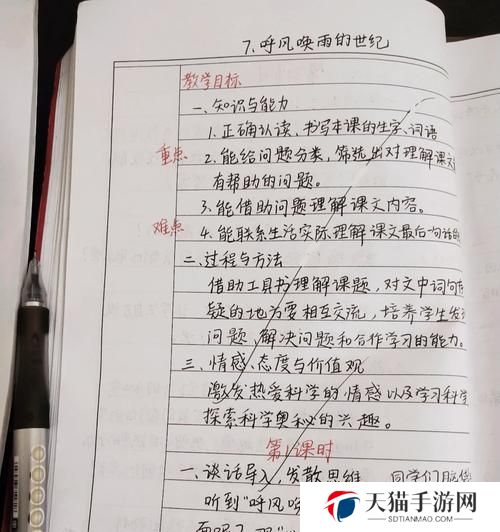 7.呼风唤雨的世纪
教学目标
一、知识与能力
1.正确认读、书写本课的生字、词语
重点 2.能给问题分类,筛选出对理解课文
有帮助的问题。
3.能借助问题理解课文内容。
难点 4.能联系生活实际理解课文最后一句话的
二、过程与方法
借助工具书理解课题,对文中词句有
疑的地方要相互交流,培养学生发现
问题、解决问题和合作学习的能力。
三、情感、态度与价值观
激发热爱科学的情感以及学习科学
探索科学奥秘的兴趣。
第1课时
一、谈话导入,发散思维 同学们
听到"呼风唤
天猫手游网
SDTIANMAO.COM